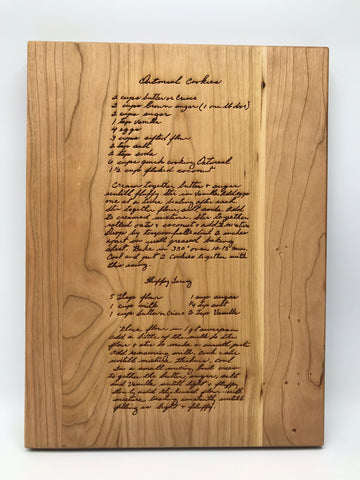 Oatmeal Cookies
2 cups butter or Crisco
2 cups Brown sugar (1 one lb box)
2 cups sugar
1 tsp Vanilla
4 eggs
3 cups sifted flour
2 tsp salt
2 tsp soda
6 cups quick cooking Oatmeal
1 1/2 cup flaked coconut
Cream together butter & sugar
until fluffy. Stir in Vanilla. Add eggs
one at a time, beating after each.
Stir together flour, salt, soda. Add
to creamed mixture. Stir together
rolled oats & coconut & add to mixture
Drop by teaspoon 2 inches
apart on well greased baking
sheet. Bake in 350° oven 10-15 min.
Cool and put 2 cookies together with
this icing.
Fluffy Icing
5 Tbsp flour 1 cup sugar
1 cup milk 1/4 tsp salt
1 cup butter or Crisco 2 tsp Vanilla
Place flour in 1 qt saucepan
Add a little of the milk to the
flour & stir to make a smooth paste
Add remaining milk, cook
until mixture thickens, cool
In a small mixing bowl cream
together the butter, sugar, salt
and Vanilla until light & fluffy
Slowly add thickened flour milk
mixture beating constantly until
filling is light & fluffy.